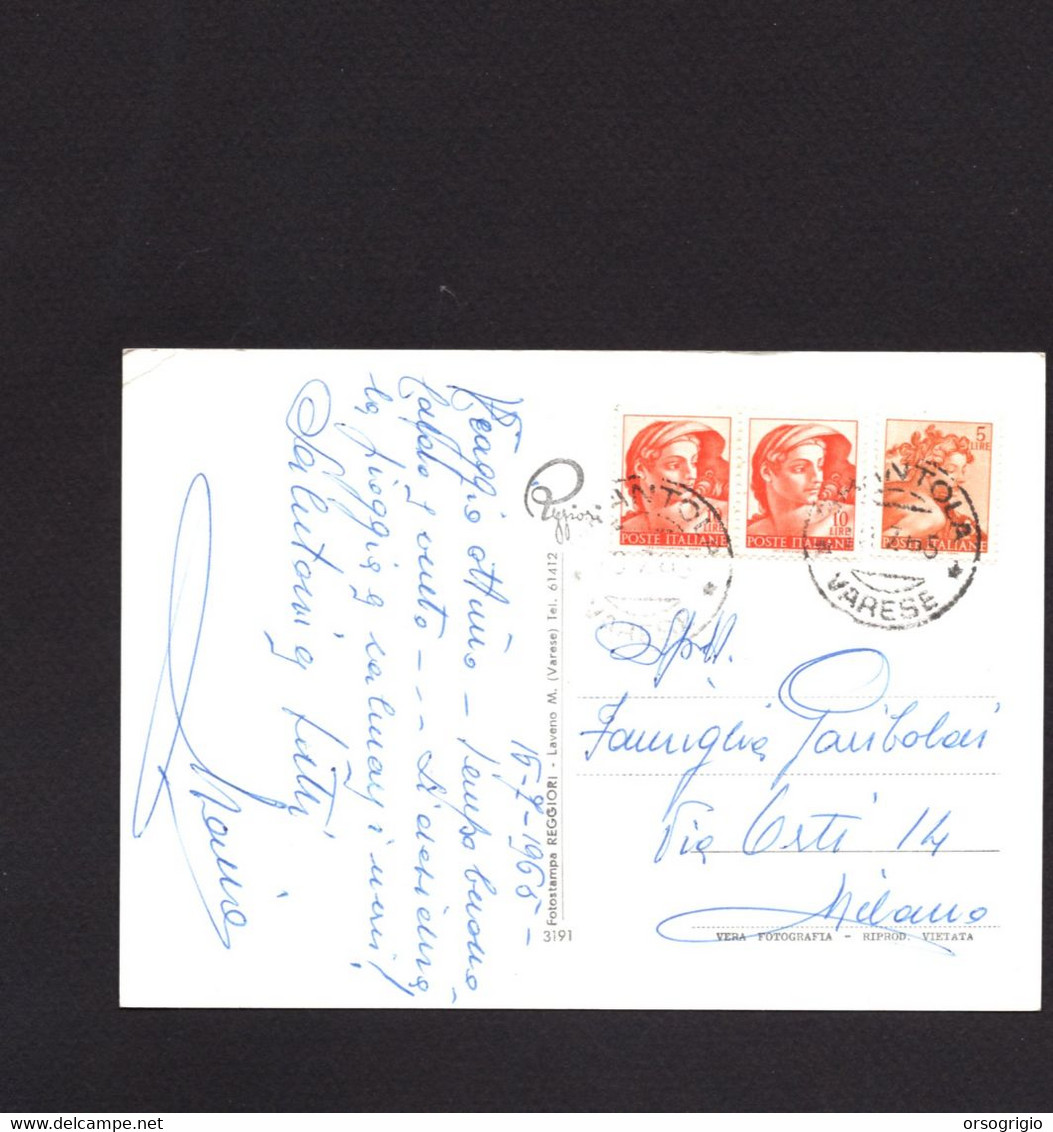 15-7-1965-
Viaggio ottimo - Tempo buono -
Caldo e vento - - - Si desidera
la pioggia e calmare i nervi!
Saluto i tutti
Maria
Reggiori
Fotostampa REGGIORI - Laveno M. (Varese) Tel. 61412
3191
10
LIRE
POSTE ITALIANE
10
LIRE
POSTE ITALIANE
5
LIRE
POSTE ITALIANE
VARESE
Spett.
Famiglia Gariboldi
Via Orti 14
Milano
VERA FOTOGRAFIA - RIPROD. VIETATA
delcampe.net
orsogrigio